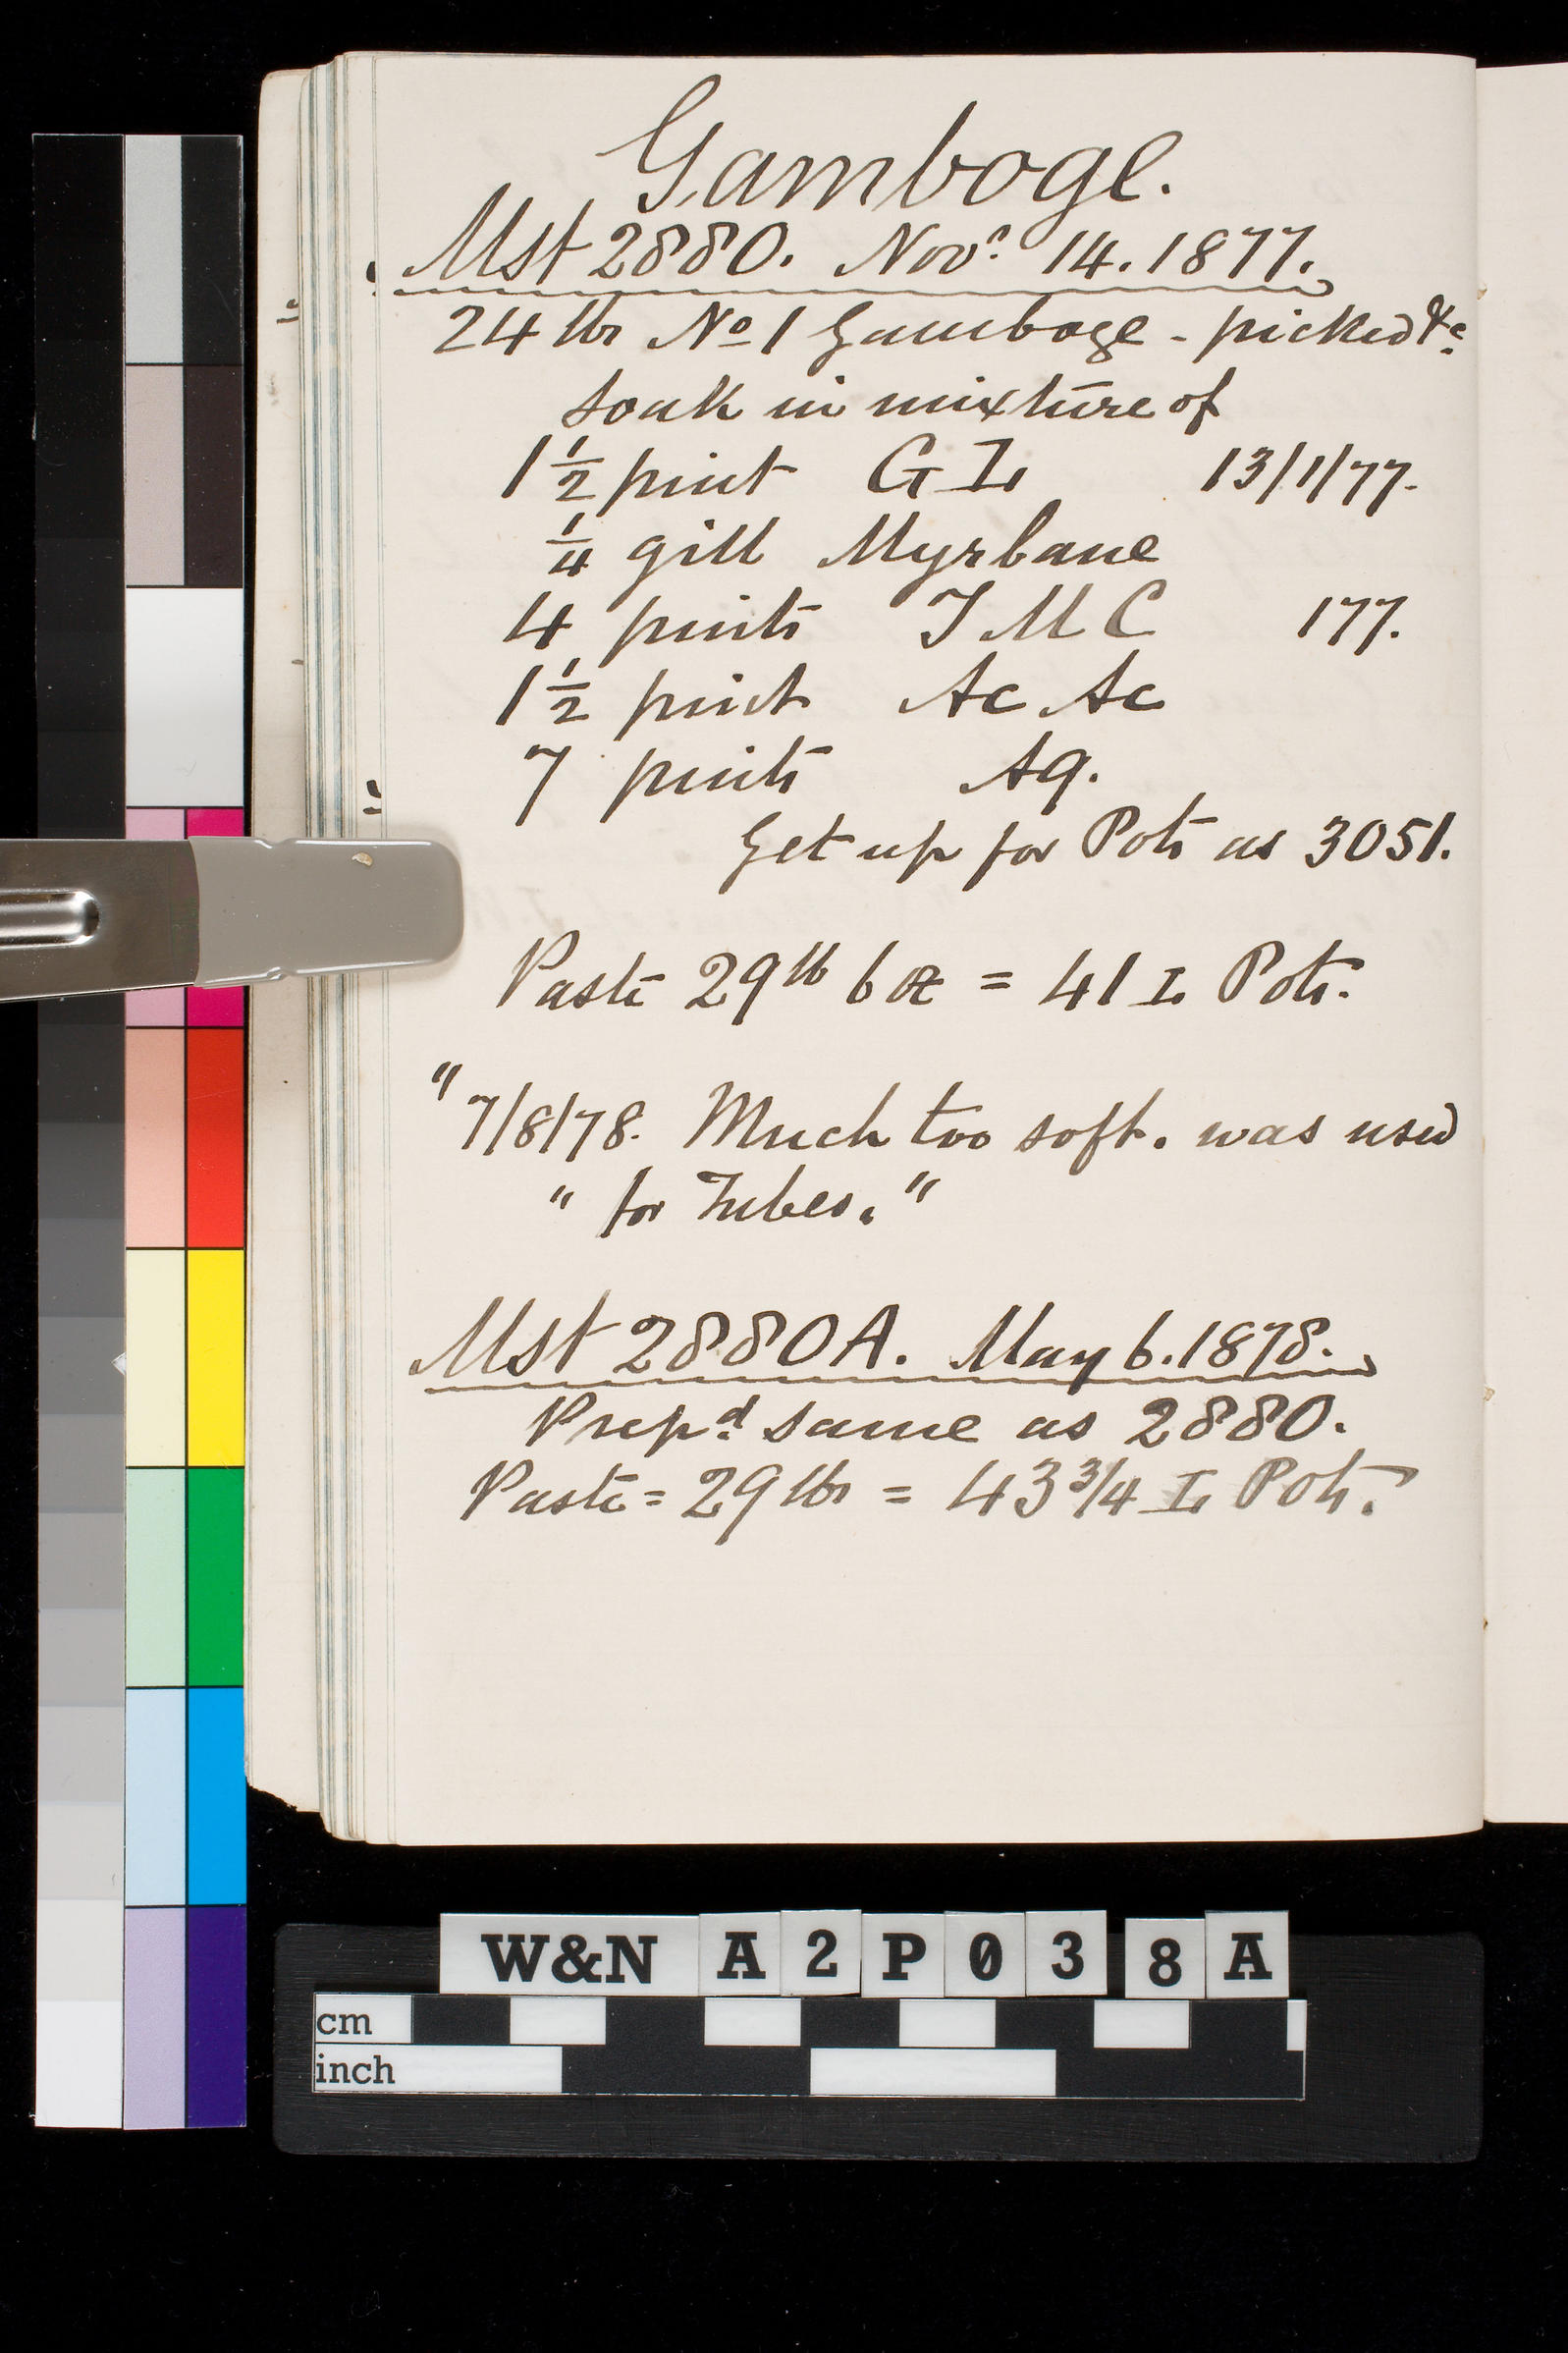 Gamboge.
Mst 2880. Novr 14. 1877.
24 lbs No 1 Gamboge - picked &c
soak in mixture of
1 1/2 pint G I 13/1/77.
1/4 gill Myrbane
4 pints T M C 177.
1 1/2 pint Ac Ac
7 pints Aq.
Get up for Pots as 3051.
Paste 29 lb 6 oz = 41 I Pots.
" 7/8/78. Much too soft. was used
" for Tubes. "
Mst 2880A. May 6. 1878.
Prepd same as 2880.
Paste = 29 lbs = 43 3/4 I Pots.
W&N A2P038A
cm
inch